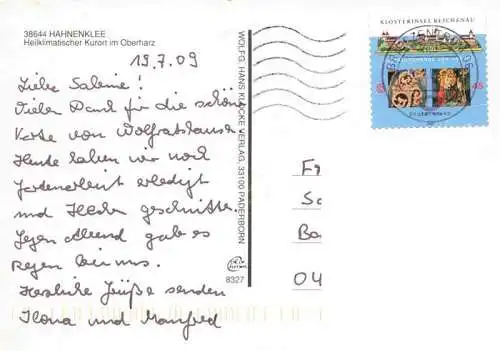 38644 HAHNENKLEE
Heilklimatischer Kurort im Oberharz
19.7.09
Liebe Sabine!
Vielen Dank für die schöne
Karte von Wolfratshausen
Heute haben wir noch
Gartenarbeit erledigt
und Hecke geschnitten.
Gegen Abend gab es
Regen bei uns.
Herzliche Grüße senden
Ilona und Manfred
WOLFG. HANS KLOCKE VERLAG, 33100 PADERBORN
8327
KLOSTERINSEL REICHENAU
45
Deutschland
Fr
Sc
Ba
04